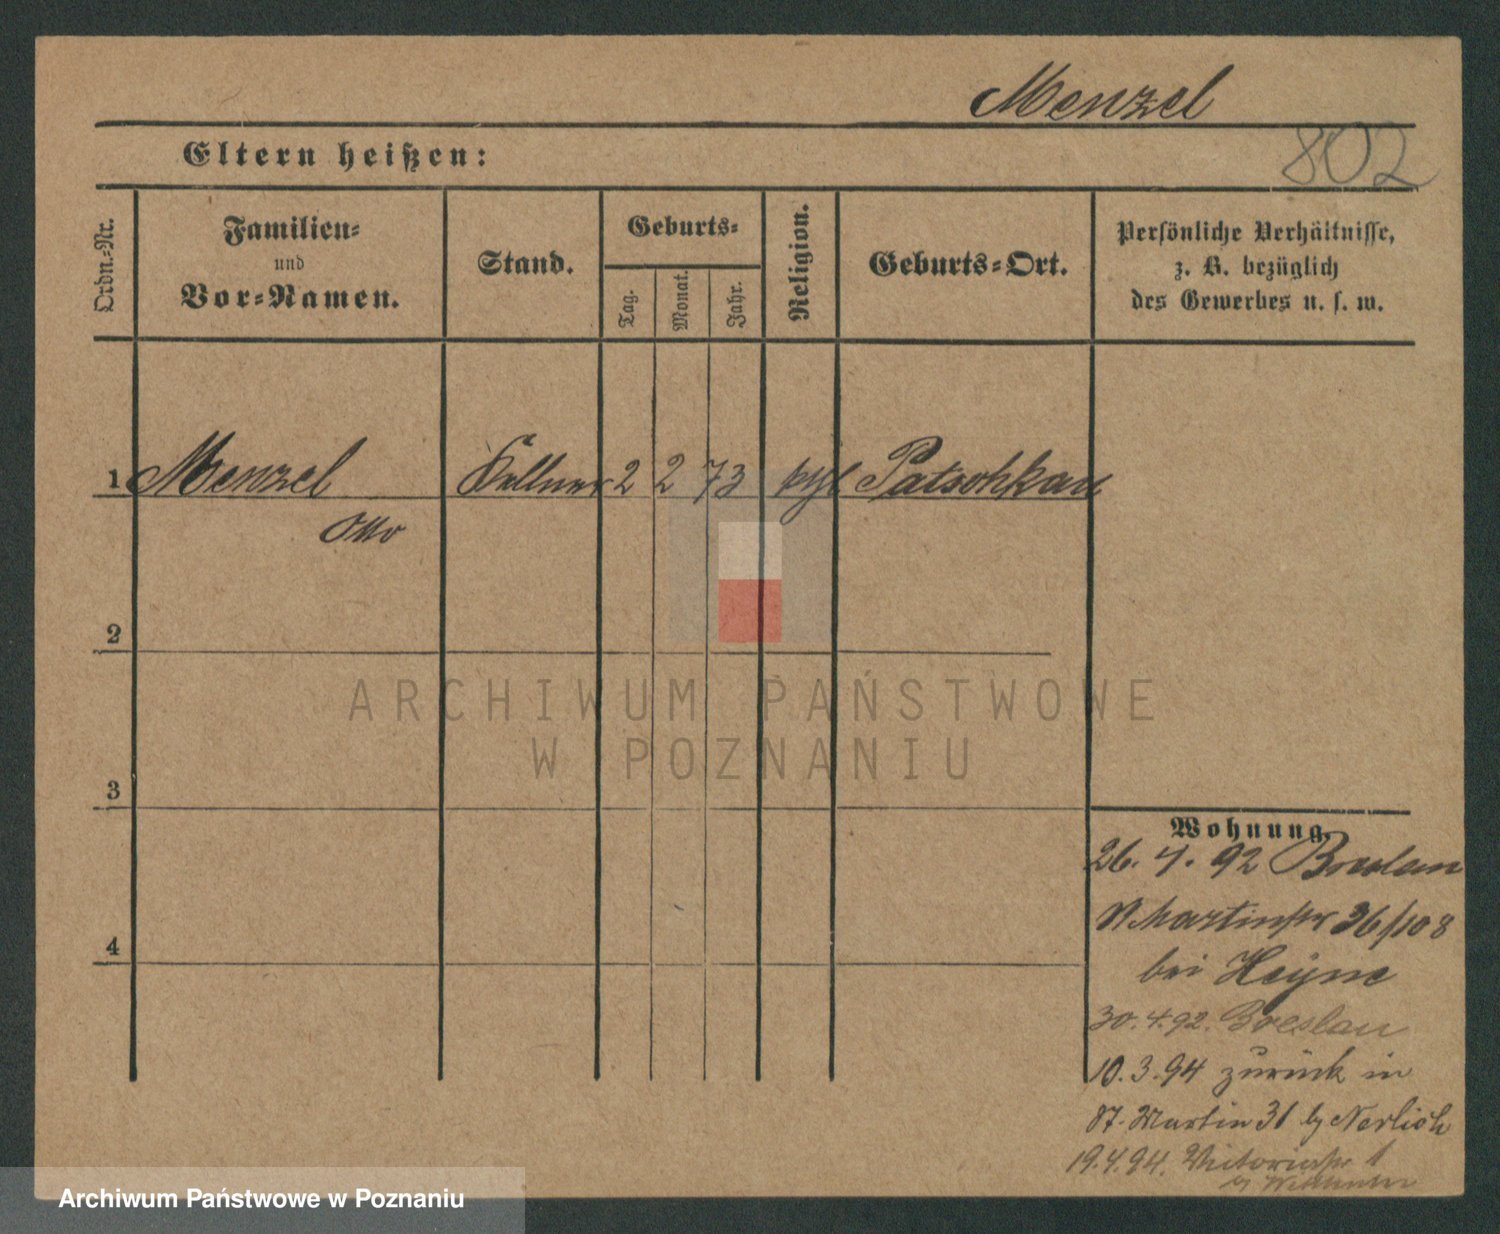 Menzel
802
Eltern heißen:
Ordn.-Nr.
Familien-
und
Vor-Namen.
Stand.
Geburts-
Tag.
Monat.
Jahr.
Religion.
Geburts-Ort.
Persönliche Verhältnisse,
z. B. bezüglich
des Gewerbes u. s. w.
1 Menzel Kellner 2 2 73 ktl Patschkau
Otto
2
ARCHIWUM PAŃSTWOWE
W POZNANIU
3
Wohnung
26. 4. 92 Breslau
St Martinstr 36/108
bei Heyne
30.4.92. Breslau
10.3.94 zurück in
St. Martin 31 b/ Nerlich
19.4.94. Victoriastr 1
b/
4
Archiwum Państwowe w Poznaniu